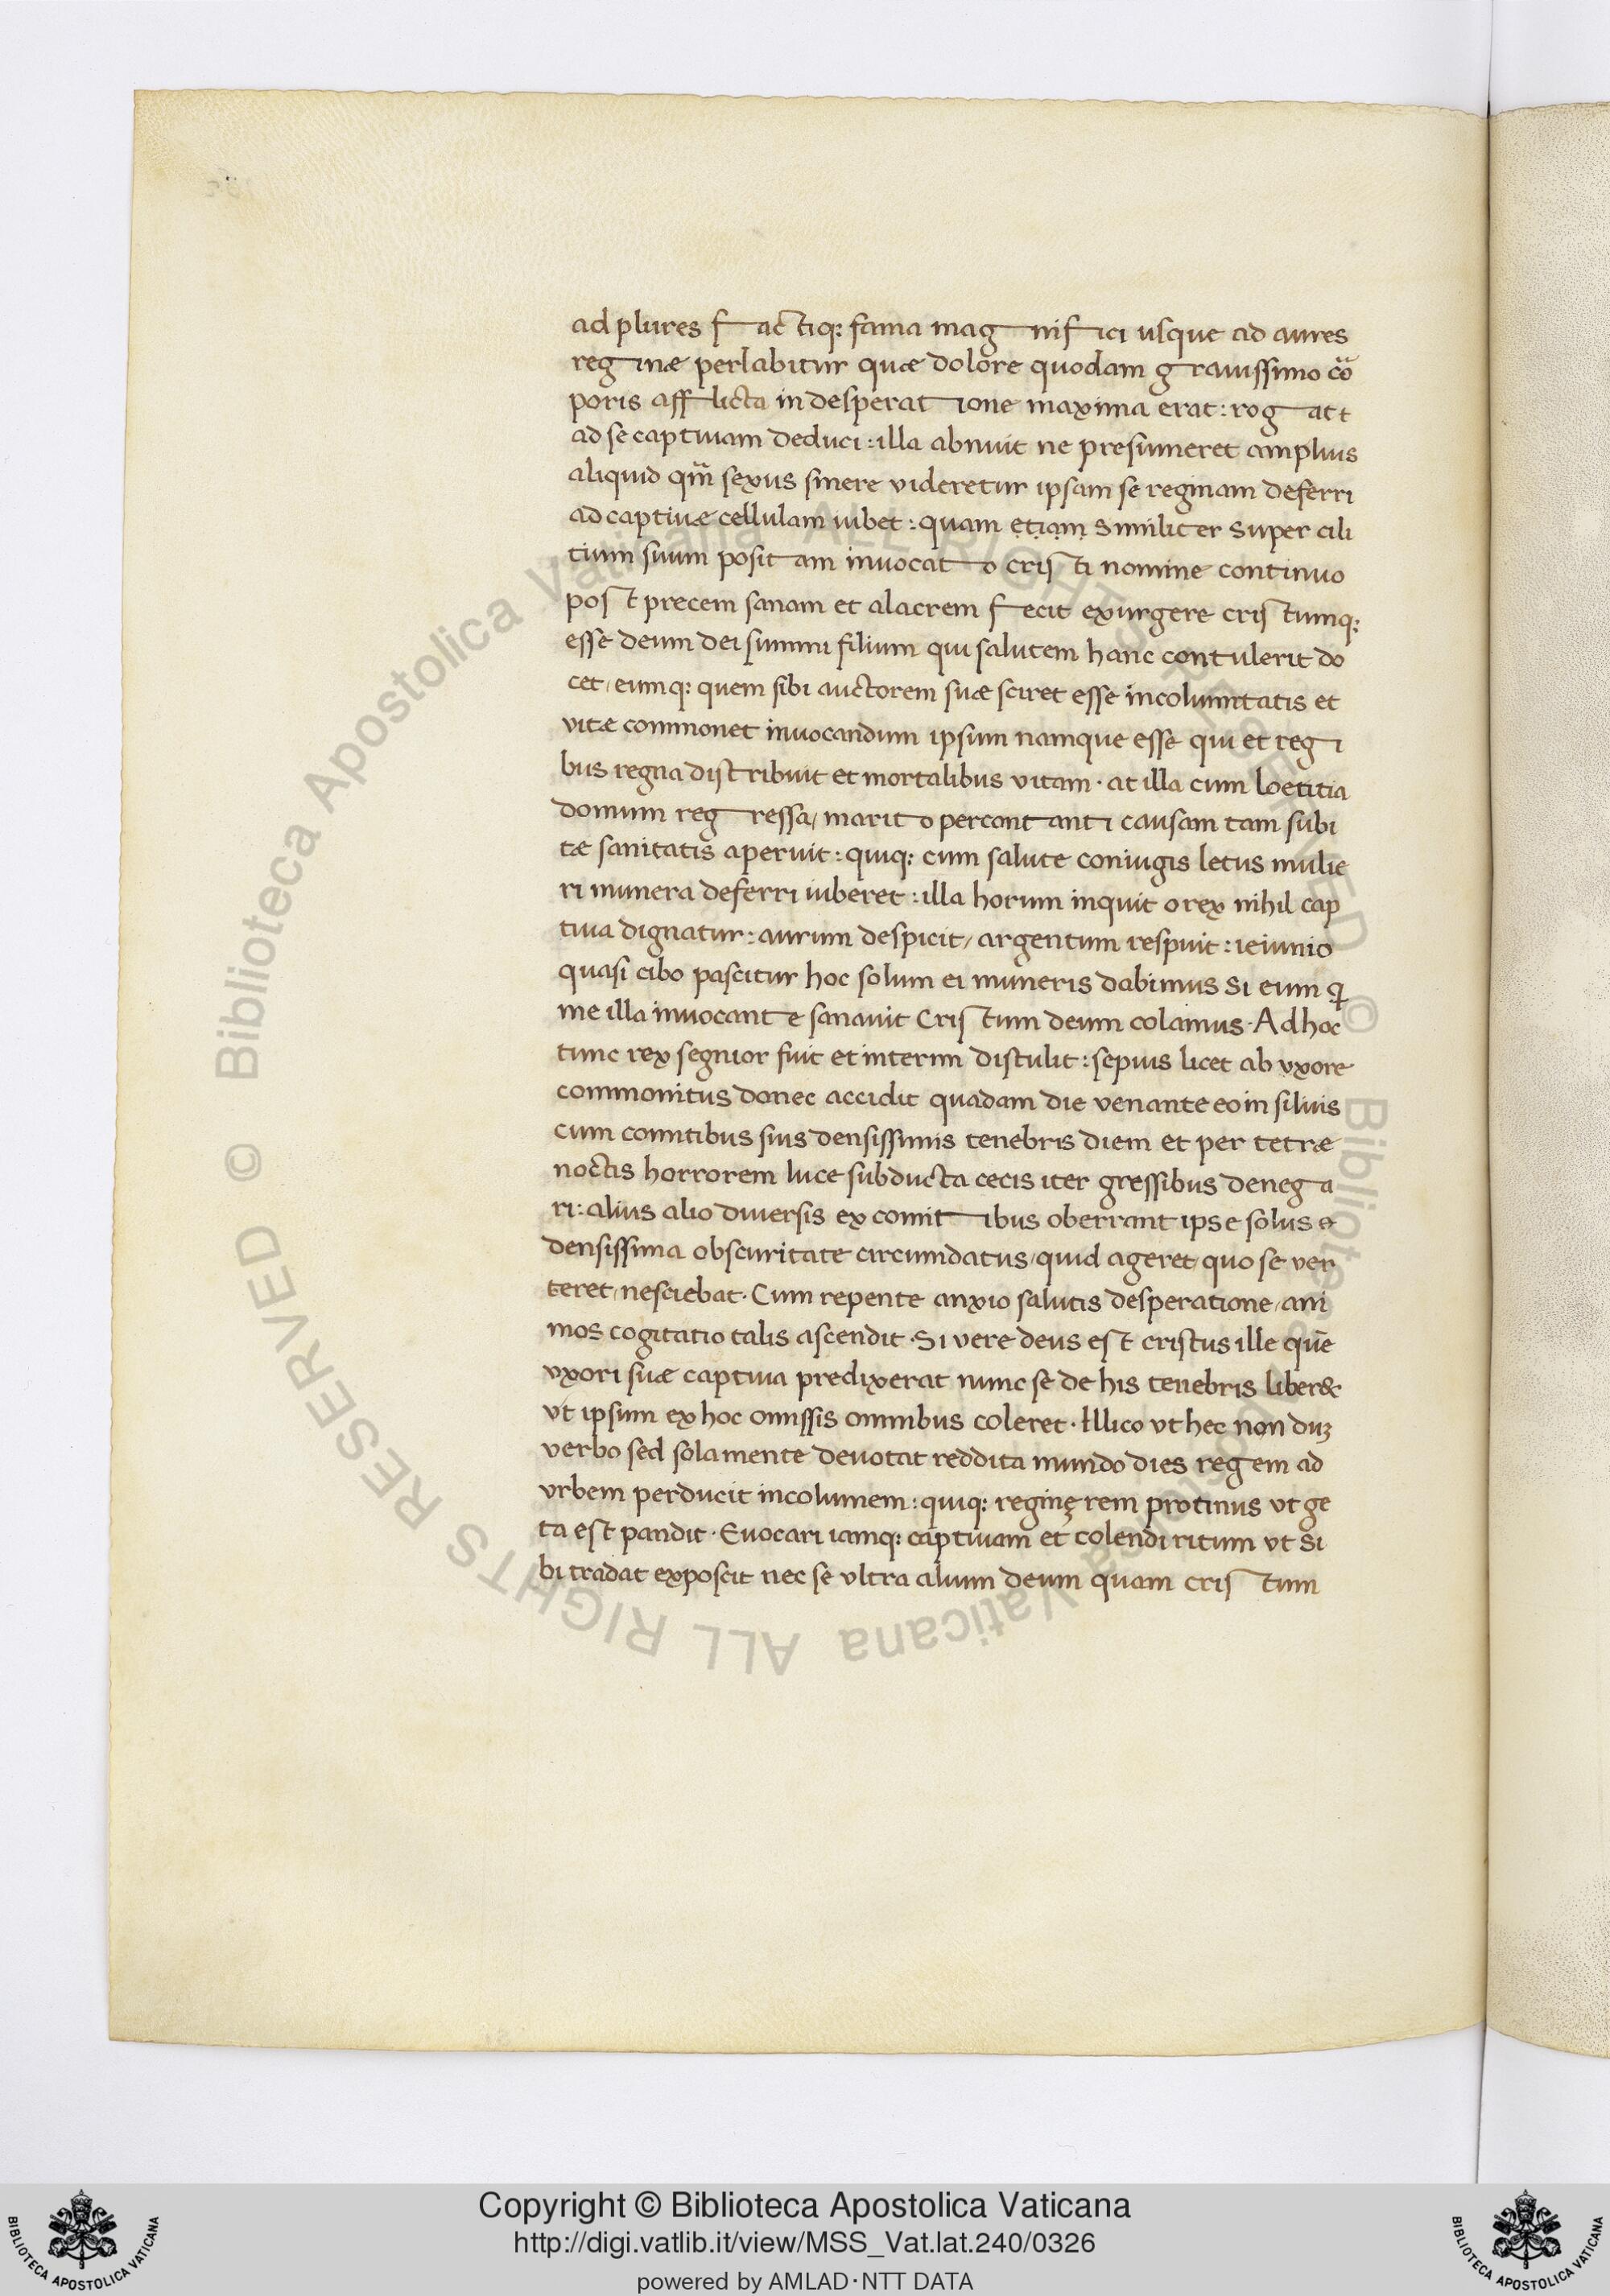 ad plures factiq: fama magnifici usque ad aures
reginæ perlabitur quæ dolore quodam grauissimo coᷓ
poris afflicta in desperatione maxima erat: rogat t
ad se captiuam deduci: illa abnuit ne presumeret amplius
aliquid qm̃ sexus sinere videretur ipsam se reginam deferri
ad captiuæ cellulam iubet: quam etiam similiter super cili
tium suum positam inuocato cristi nomine continuo
post precem sanam et alacrem fecit exurgere cristumq:
esse deum dei summi filium qui salutem hanc contulerit do
cet, eumq: quem sibi auctorem suæ sciret esse incolumitatis et
vitæ commonet inuocandum ipsum namque esse qui et regi
bus regna distribuit et mortalibus vitam · at illa cum loetitia
domum regressa, marito percontanti causam tam subi
tæ sanitatis aperuit: quiq: cum salute coniugis letus mulie
ri munera deferri iuberet: illa horum inquit o rex nihil cap
tiua dignatur: aurum despicit, argentum respuit: ieiunio
quasi cibo pascitur hoc solum ei muneris dabimus si eum q
me illa inuocante sanauit Cristum deum colamus · Ad hoc
tunc rex segnior fuit et interim distulit: sepius licet ab vxore
commonitus donec accidit quadam die venante eo in siluis
cum comitibus suis densissimis tenebris diem et per tetræ
noctis horrorem luce subducta cecis iter gressibus denega
ri: alius alio diuersis ex comitibus oberrant ipse solus e
densissima obscuritate circumdatus, quid ageret, quo se ver
teret, nesciebat · Cum repente anxio salutis desperatione, ani
mos cogitatio talis ascendit · Si vere deus est cristus ille quē
vxori suæ captiua predixerat nunc se de his tenebris liber&
vt ipsum ex hoc omissis omnibus coleret · Illico vt hec non duʒ
verbo sed sola mente deuotat reddita mundo dies regem ad
vrbem perducit incolumem: quiq: reginę rem protinus vt ge
ta est pandit · Euocari iamq: captiuam et colendi ritum vt si
bi tradat exposcit nec se vltra alium deum quam cristum
© Biblioteca Apostolica Vaticana ALL RIGHTS RESERVED © Biblioteca Apostolica Vaticana ALL RIGHTS RESERVED
Copyright © Biblioteca Apostolica Vaticana
http://digi.vatlib.it/view/MSS_Vat.lat.240/0326
powered by AMLAD·NTT DATA
BIBLIOTECA APOSTOLICA VATICANA
BIBLIOTECA APOSTOLICA VATICANA